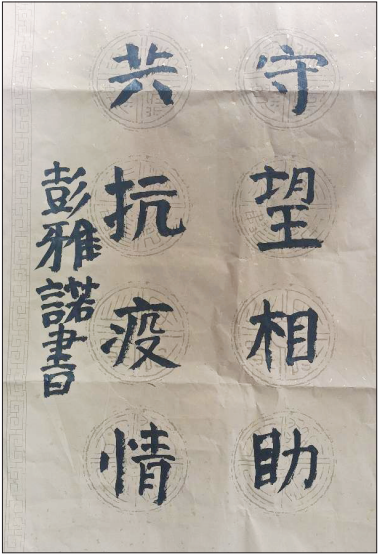 守望相助
共抗疫情
彭雅諾書